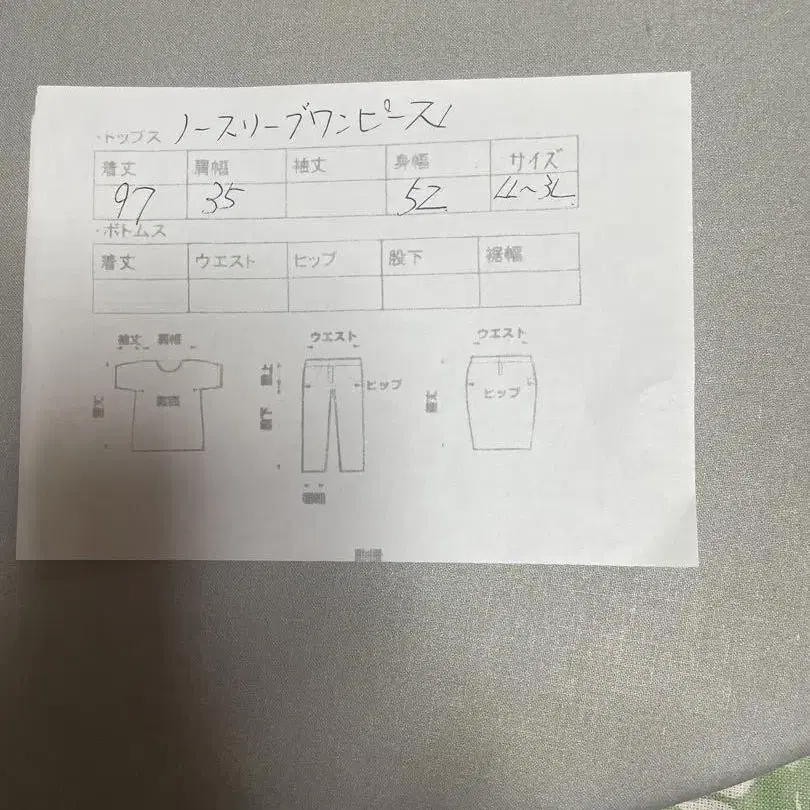 ノースリーブワンピース
・トップス
着丈 肩幅 袖丈 身幅 サイズ
97 35 52 LL〜3L
・ボトムス
着丈 ウエスト ヒップ 股下 裾幅
袖丈 肩幅 ウエスト ウエスト
ヒップ ヒップ
股下